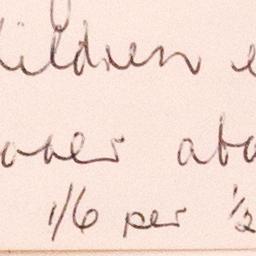 ildren e
over abo
1/6 per 1/2